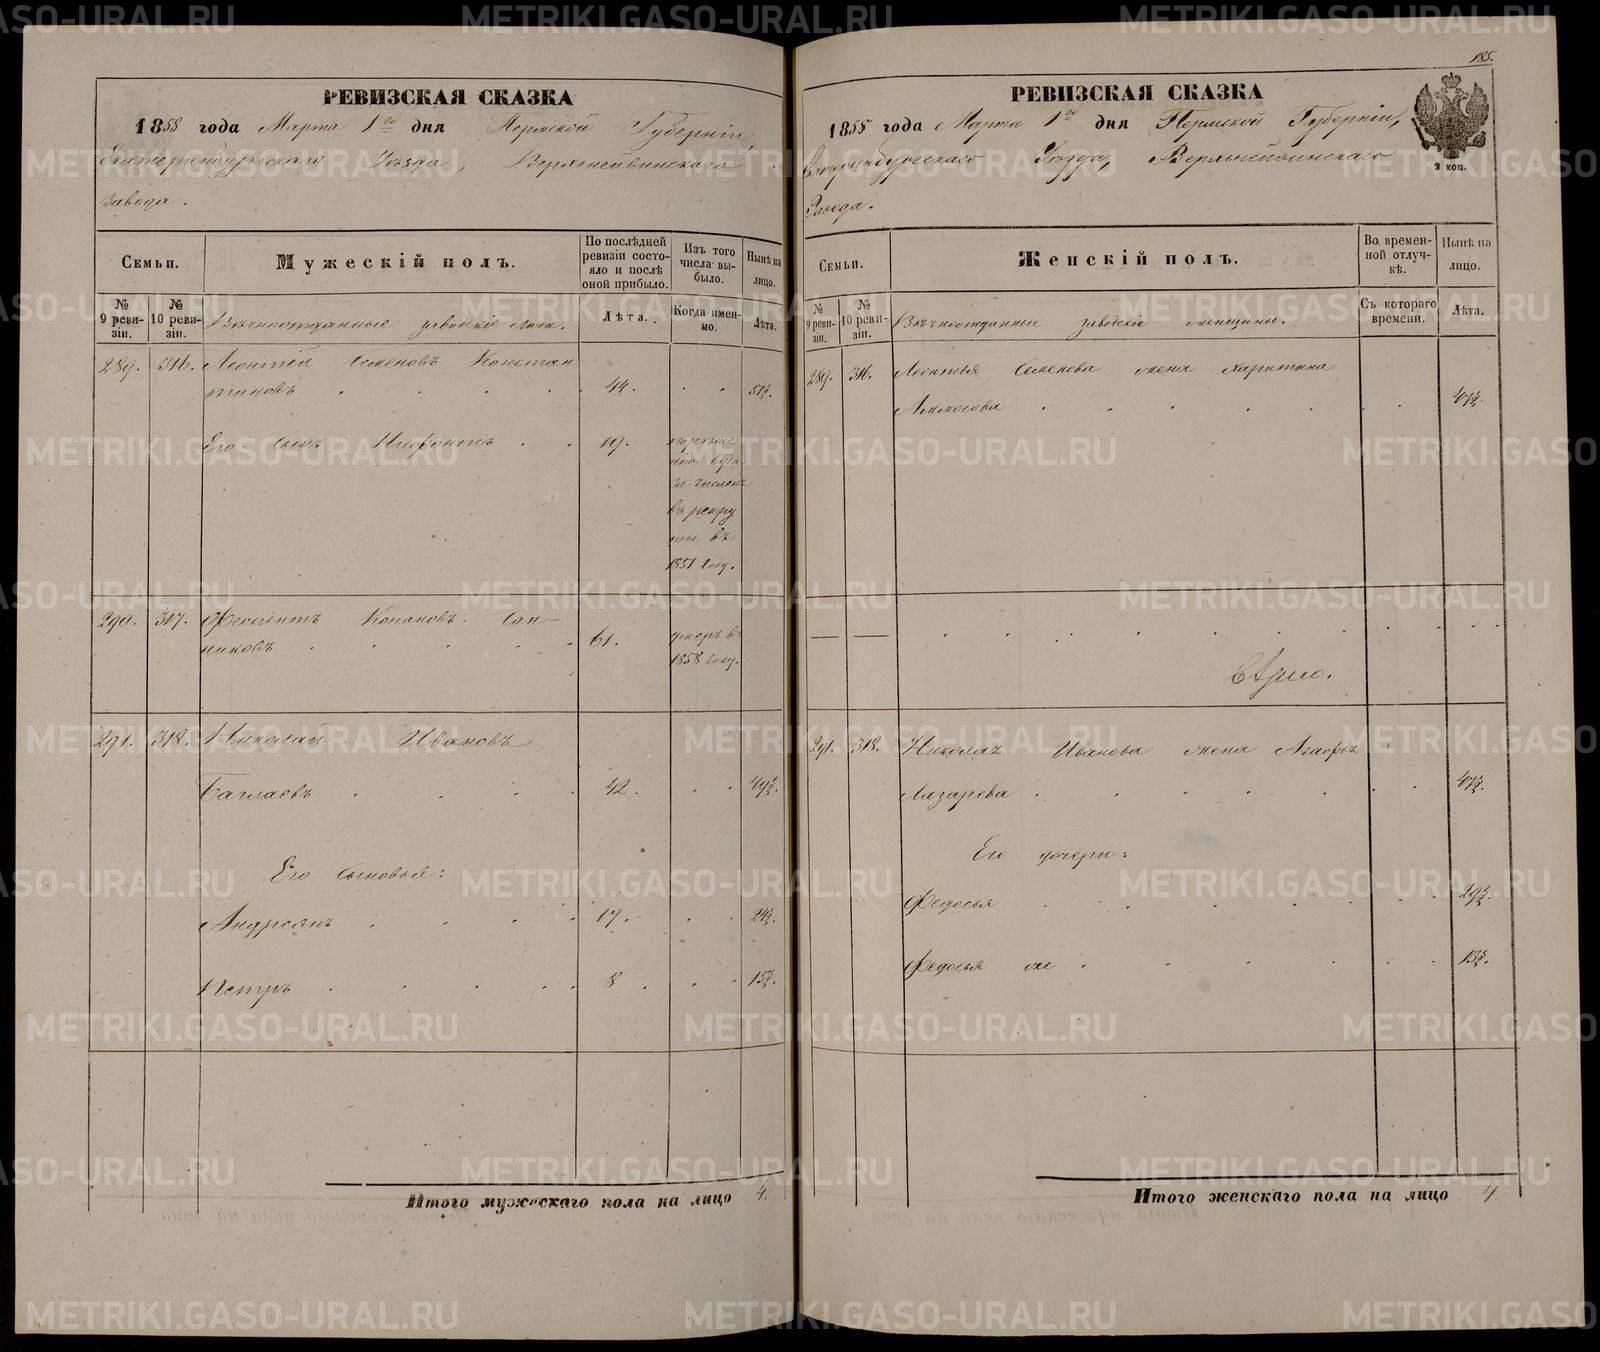 РЕВИЗСКАЯ СКАЗКА
1858 года Марта 1го дня Пермской Губерніи,
Екатеринбургскаго Уѣзда, Верхнейвинскаго
Завода.
Семьи.
Мужескій полъ.
По послѣдней ревизіи состояло и послѣ оной прибыло.
Изъ того числа выбыло.
Нынѣ на лицо.
№ 9 ревизіи.
№ 10 ревизіи.
Вѣчноотданные заводскіе люди.
Лѣта.
Когда именно.
Лѣта.
289. 316. Леонтій Семеновъ Констан
тиновъ . . . . . 44. . . 51½.
Его сынъ Нифонтъ . . 19.
за числомъ
въ рекру
ты въ
1851 году.
290. 317. Конановъ Сан-
никовъ . . . . . 61. умеръ въ
1858 году.
291. 318. Николай Ивановъ
Баглаевъ . . . . 42. . . 49½.
Его сыновья:
Андреянъ . . . . 17. . . 24½.
Петръ . . . . . 8. . . 15½.
Итого мужескаго пола на лицо 4.
185.
РЕВИЗСКАЯ СКАЗКА
1858 года Марта 1го дня Пермской Губерніи,
Екатеринбургскаго Уѣзда, Верхнейвинскаго
Завода.
3 коп.
Семьи.
Женскій полъ.
Во временной отлучкѣ.
Нынѣ на лицо.
№ 9 ревизіи.
№ 10 ревизіи.
Вѣчноотданные заводскіе женщины.
Съ котораго времени.
Лѣта.
289. 316. Леонтья Семенова жена Харитина
Аммосова . . . . . . . 47½.
— — . . . . . . . . .
291. 318. Николая Иванова жена Агафья
Лазарева . . . . . . . 47½.
Его дочери:
Федосья . . . . . . . 29½.
Федосья же . . . . . . 13½.
Итого женскаго пола на лицо 4
METRIKI.GASO-URAL.RU